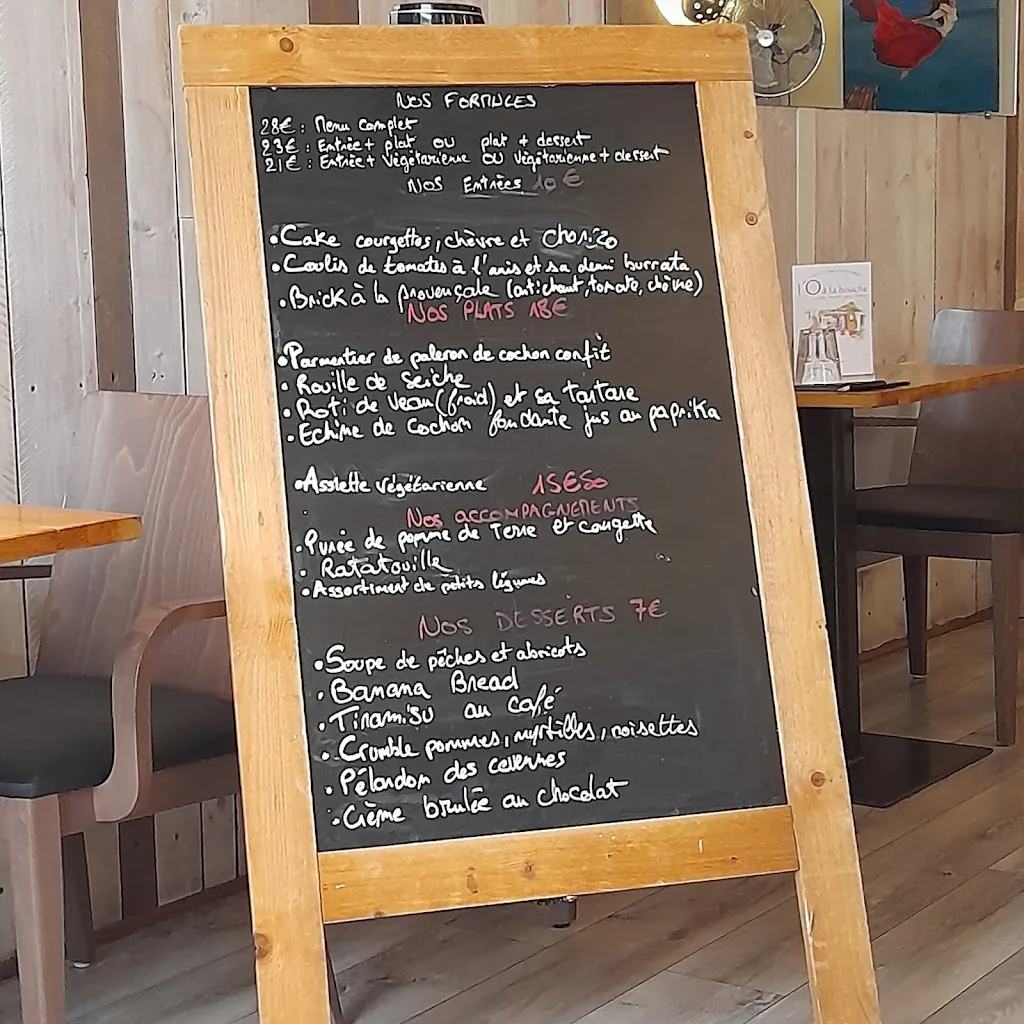 NOS FORMULES
28€ : Menu complet
23€ : Entrée + plat ou plat + dessert
21€ : Entrée + végétarienne ou végétarienne + dessert
Nos Entrées 10 €
• Cake courgettes, chèvre et chorizo
• Coulis de tomates à l'anis et sa demi burrata
• Brick à la provençale (artichaut, tomate, chèvre)
NOS PLATS 18€
• Parmentier de paleron de cochon confit
• Rouille de Seiche
• Roti de veau (froid) et sa tartare
• Echine de cochon fondante jus au paprika
• Assiette végétarienne 15€50
Nos ACCOMPAGNEMENTS
• Purée de pomme de Terre et courgette
• Ratatouille
• Assortiment de petits légumes
Nos DESSERTS 7€
• Soupe de pêches et abricots
• Banana Bread
• Tiramisu au café
• Crumble pommes, myrtilles, noisettes
• Pélardon des cevennes
• Crème brulée au chocolat
l'O à la bouche